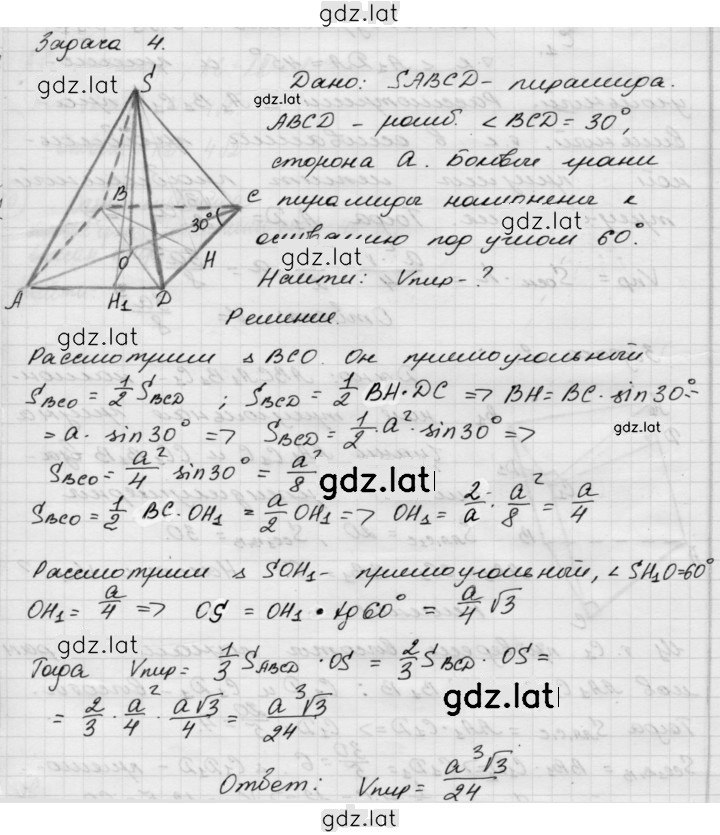 gdz.lat
Задача 4.
gdz.lat
S
B
C
30°
O
H
A
H₁
D
Дано: SABCD - пирамида.
gdz.lat
ABCD - ромб. ∠BCD = 30°,
сторона a. Боковые грани
пирамиды наклонены к
gdz.lat
основанию под углом 60°.
gdz.lat
Найти: Vпир - ?
gdz.lat
Решение.
Рассмотрим △ BCO. Он прямоугольный
S_BCO = 1/2 S_BCD ; S_BCD = 1/2 BH · DC => BH = BC · sin 30° =
gdz.lat
= a · sin 30° => S_BCD = 1/2 · a² · sin 30° =>
S_BCO = a²/4 sin 30° = a²/8
gdz.lat
S_BCO = 1/2 BC · OH₁ = a/2 OH₁ => OH₁ = 2/a · a²/8 = a/4
Рассмотрим △ SOH₁ - прямоугольный, ∠ SH₁O = 60°
OH₁ = a/4 => OS = OH₁ · tg 60° = a/4 √3
gdz.lat
Тогда Vпир = 1/3 S_ABCD · OS = 2/3 S_BCD · OS =
gdz.lat
= 2/3 · a²/4 · a√3/4 = a³√3/24
Ответ: Vпир = a³√3/24
gdz.lat